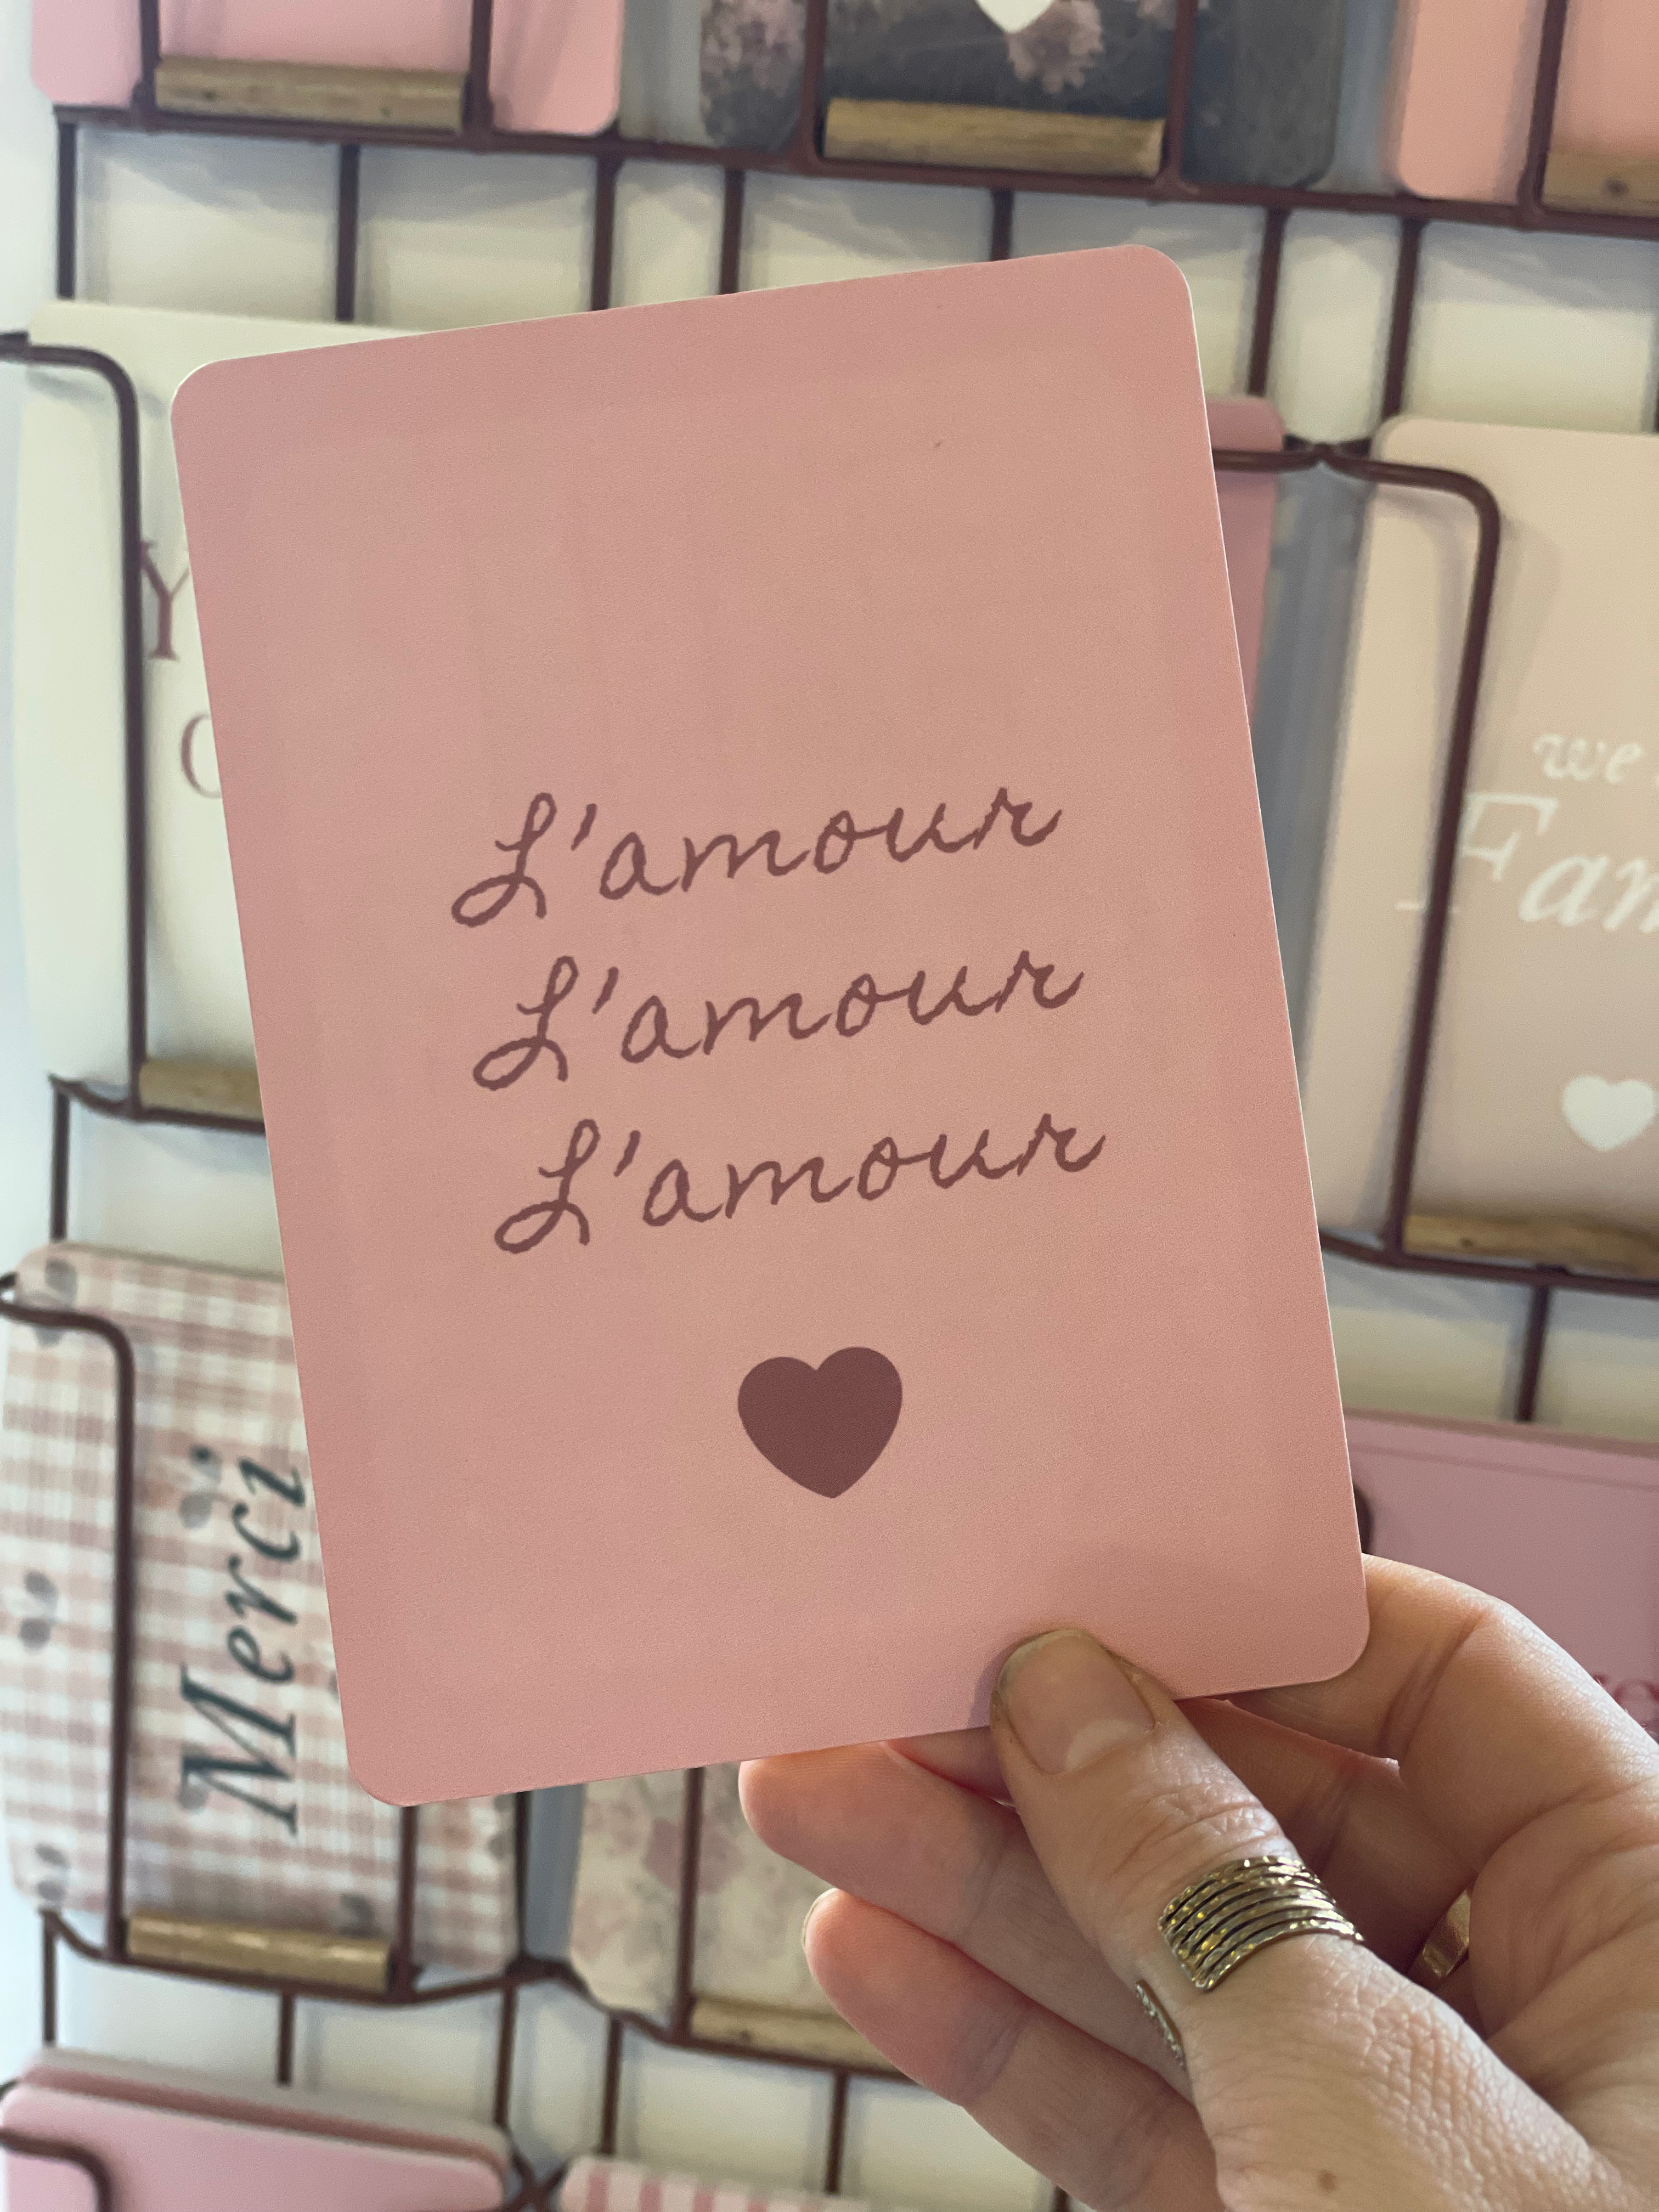 L'amour
L'amour
L'amour
we
Merci